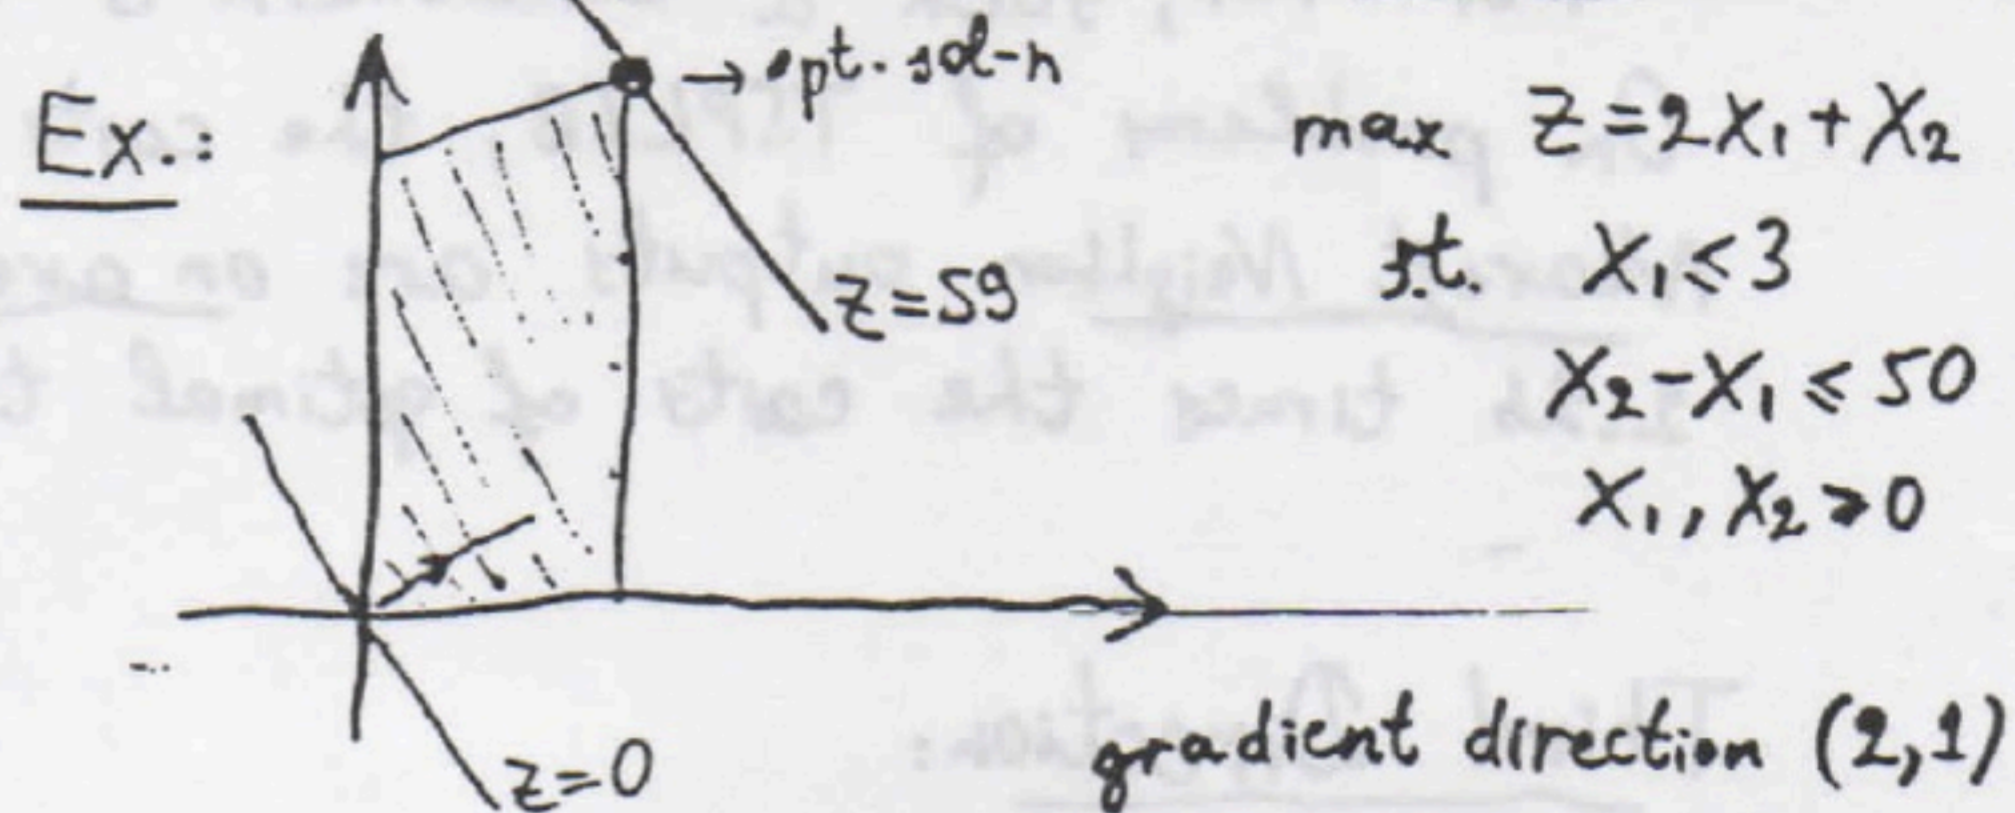 Ex.:
→ opt. sol-n
max Z = 2X₁ + X₂
s.t. X₁ ≤ 3
X₂ - X₁ ≤ 50
X₁, X₂ ≥ 0
Z = 59
Z = 0
gradient direction (2,1)